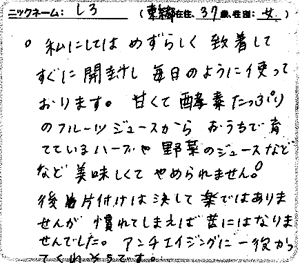 ニックネーム: しろ (東京在住、37歳、性別: 女)
。私にしては めずらしく 到着して
すぐに 開封し 毎日のように 使って
おります。 甘くて 酵素たっぷり
のフルーツジュースから おうちで育
てているハーブや 野菜のジュースなど
など 美味しくて やめられません。
後片付けは決して楽ではありま
せんが 慣れてしまえば 苦にはなりま
せんでした。 アンチエイジングに一役かっ
てくれそうです。